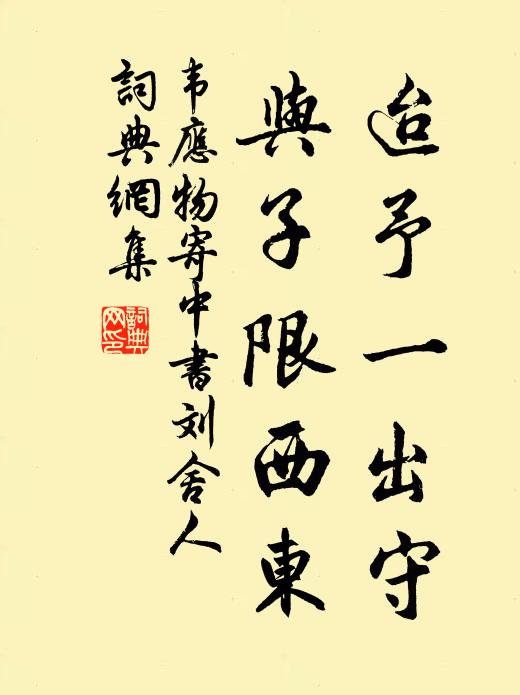 迨予一出守
與子限西東
韦應物寄中書刘舍人
詞典網集
詞典
网印